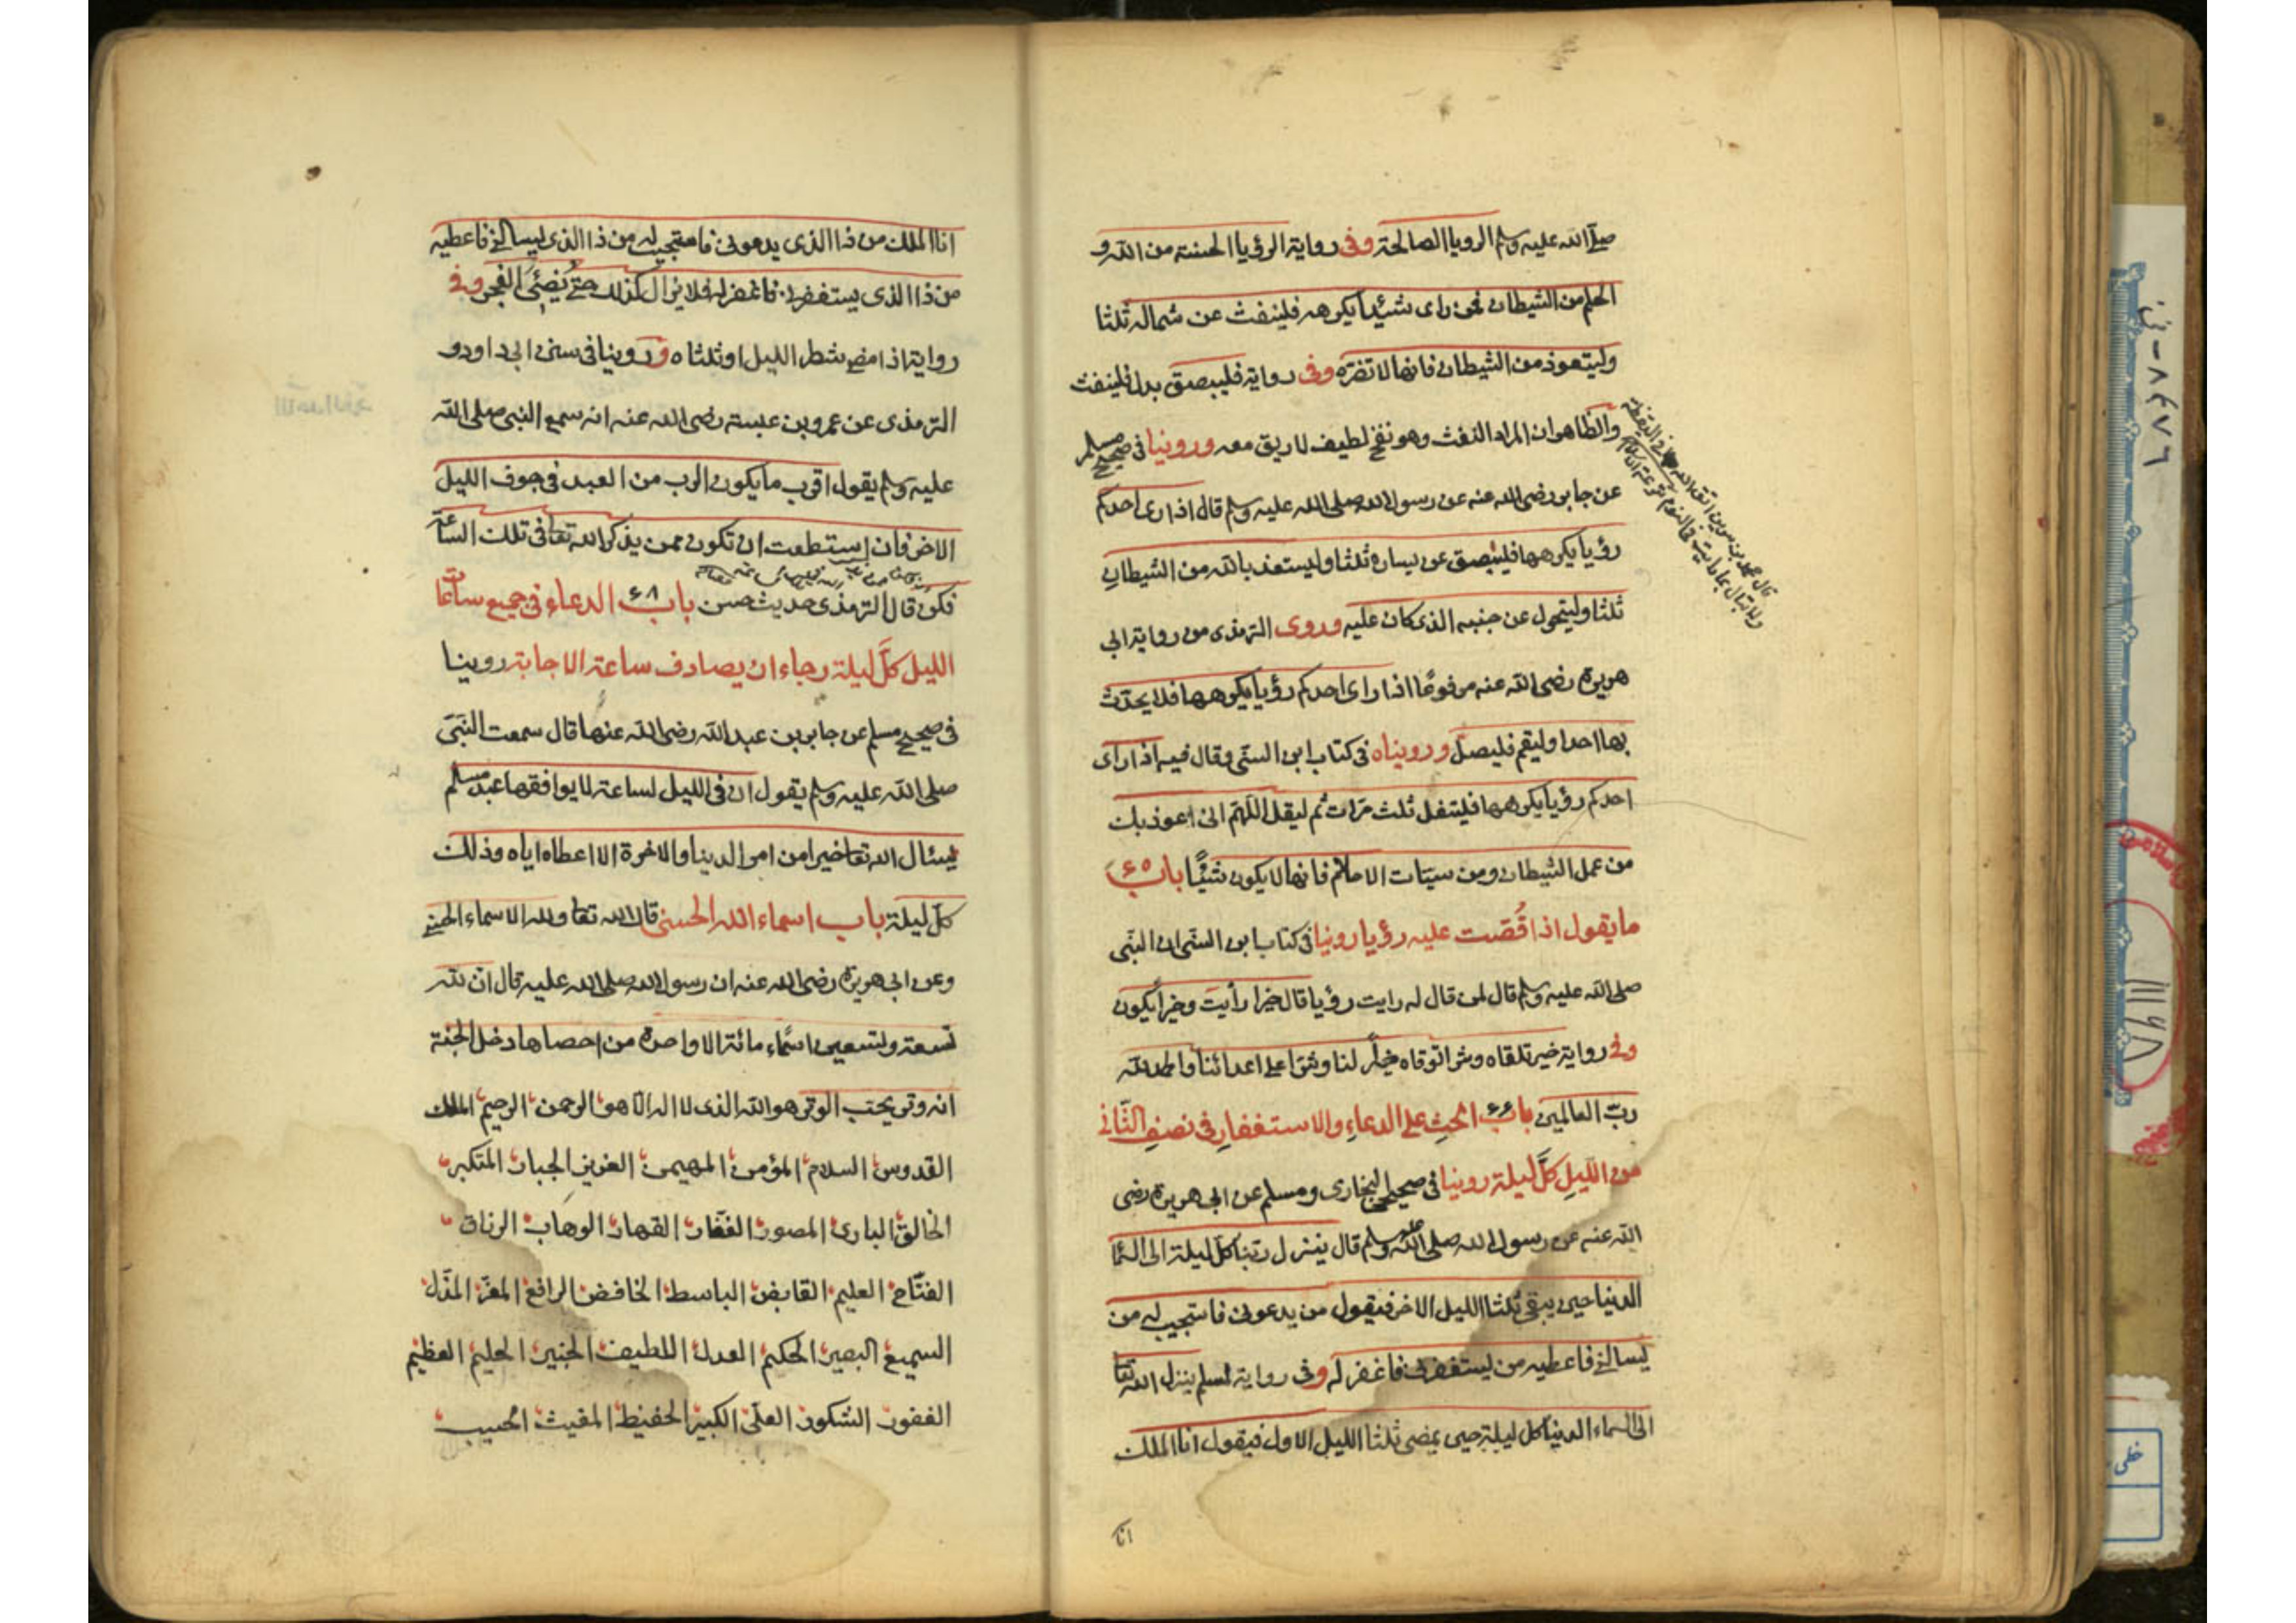 صلى الله عليه وسلم الرويا الصالحة وفى رواية الرؤيا الحسنة من الله و
الحلم من الشيطان فمن راى شيئا يكرهه فلينفث عن شماله ثلثا
وليتعوذ من الشيطان فانها لا تضره وفى رواية فليبصق بدل فلينفث
والظاهر ان المراد النفث وهو نفخ لطيف لا ريق معه وروينا فى صحيح مسلم
عن جابر رضى الله عنه عن رسول الله صلى الله عليه وسلم قال اذا راى احدكم
رؤيا يكرهها فليبصق عن يساره ثلثا وليستعذ بالله من الشيطان
ثلثا وليتحول عن جنبه الذى كان عليه وروى الترمذى من رواية ابى
هريرة رضى الله عنه مرفوعا اذا راى احدكم رؤيا يكرهها فلا يحدث
بها احدا وليقم فليصل وروينا‌ه فى كتاب ابن السنى وقال فيه اذا راى
احدكم رؤيا يكرهها فليتفل ثلث مرات ثم ليقل اللهم انى اعوذ بك
من عمل الشيطان ومن سيئات الاحلام فانها لا يكون شيئا باب ٤٥
ما يقول اذا قُصّت عليه رؤيا روينا فى كتاب ابن السنى ان النبى
صلى الله عليه وسلم قال لمن قال له رايت رؤيا قال خيرا رأيت وخيرا يكون
وفى رواية خير تلقاه وشرا توقاه خيرا لنا وشرا على اعدائنا والحمد لله
رب العالمين باب ٤٦ الحث على الدعاء والاستغفار فى نصف الثانى
من الليل كل ليلة روينا فى صحيحى البخارى ومسلم عن ابى هريرة رضى
الله عنه عن رسول الله صلى الله عليه وسلم قال ينزل ربنا كل ليلة الى السماء
الدنيا حين يبقى ثلثا الليل الاخر فيقول من يدعونى فاستجيب له من
يسالنى فاعطيه من يستغفرنى فاغفر له وفى رواية لمسلم ينزل الله تعا
الى السماء الدنيا كل ليلة حين يمضى ثلثا الليل الاول فيقول انا الملك
انا
انا الملك من ذا الذى يدعونى فاستجيب له من ذا الذى يسالنى فاعطيه
من ذا الذى يستغفرنى فاغفر له فلا يزال كذلك حتى يُضئَ الفجر وفى
رواية اذا مضى شطر الليل او ثلثاه وروينا فى سنن ابى داود و
الترمذى عن عمرو بن عبسة رضى الله عنه انه سمع النبى صلى الله
عليه وسلم يقول اقرب ما يكون الرب من العبد فى جوف الليل
الاخر فان استطعت ان تكون ممن يذكر الله تعا فى تلك الساعة
فكن قال الترمذى حديث حسن باب ٤٨ الدعاء فى جميع ساعات
الليل كل ليلة رجاء ان يصادف ساعة الاجابة روينا
فى صحيح مسلم عن جابر بن عبد الله رضى الله عنهما قال سمعت النبى
صلى الله عليه وسلم يقول ان فى الليل لساعة لا يوافقها عبد مسلم
يسئال الله تعا خيرا من امر الدينا والاخرة الا اعطاه اياه وذلك
كل ليلة باب اسماء الله الحسنى قال الله تعا ولله الاسماء الحسنى
وعن ابى هريرة رضى الله عنه ان رسول الله صلى الله عليه قال ان لله
تسعة وتسعين اسماء مائة الا واحدة من احصاها دخل الجنة
انه وتر يحب الوتر هو الله الذى لا اله الا هو الرحمن الرحيم الملك
القدوس السلام المؤمن المهيمن العزيز الجبار المتكبر
الخالق البارئ المصور الغفار القهار الوهاب الرزاق
الفتاح العليم القابض الباسط الخافض الرافع المعز المذل
السميع البصير الحكم العدل اللطيف الخبير الحليم العظيم
الغفور الشكور العلى الكبير الحفيظ المقيت الحسيب
خطى